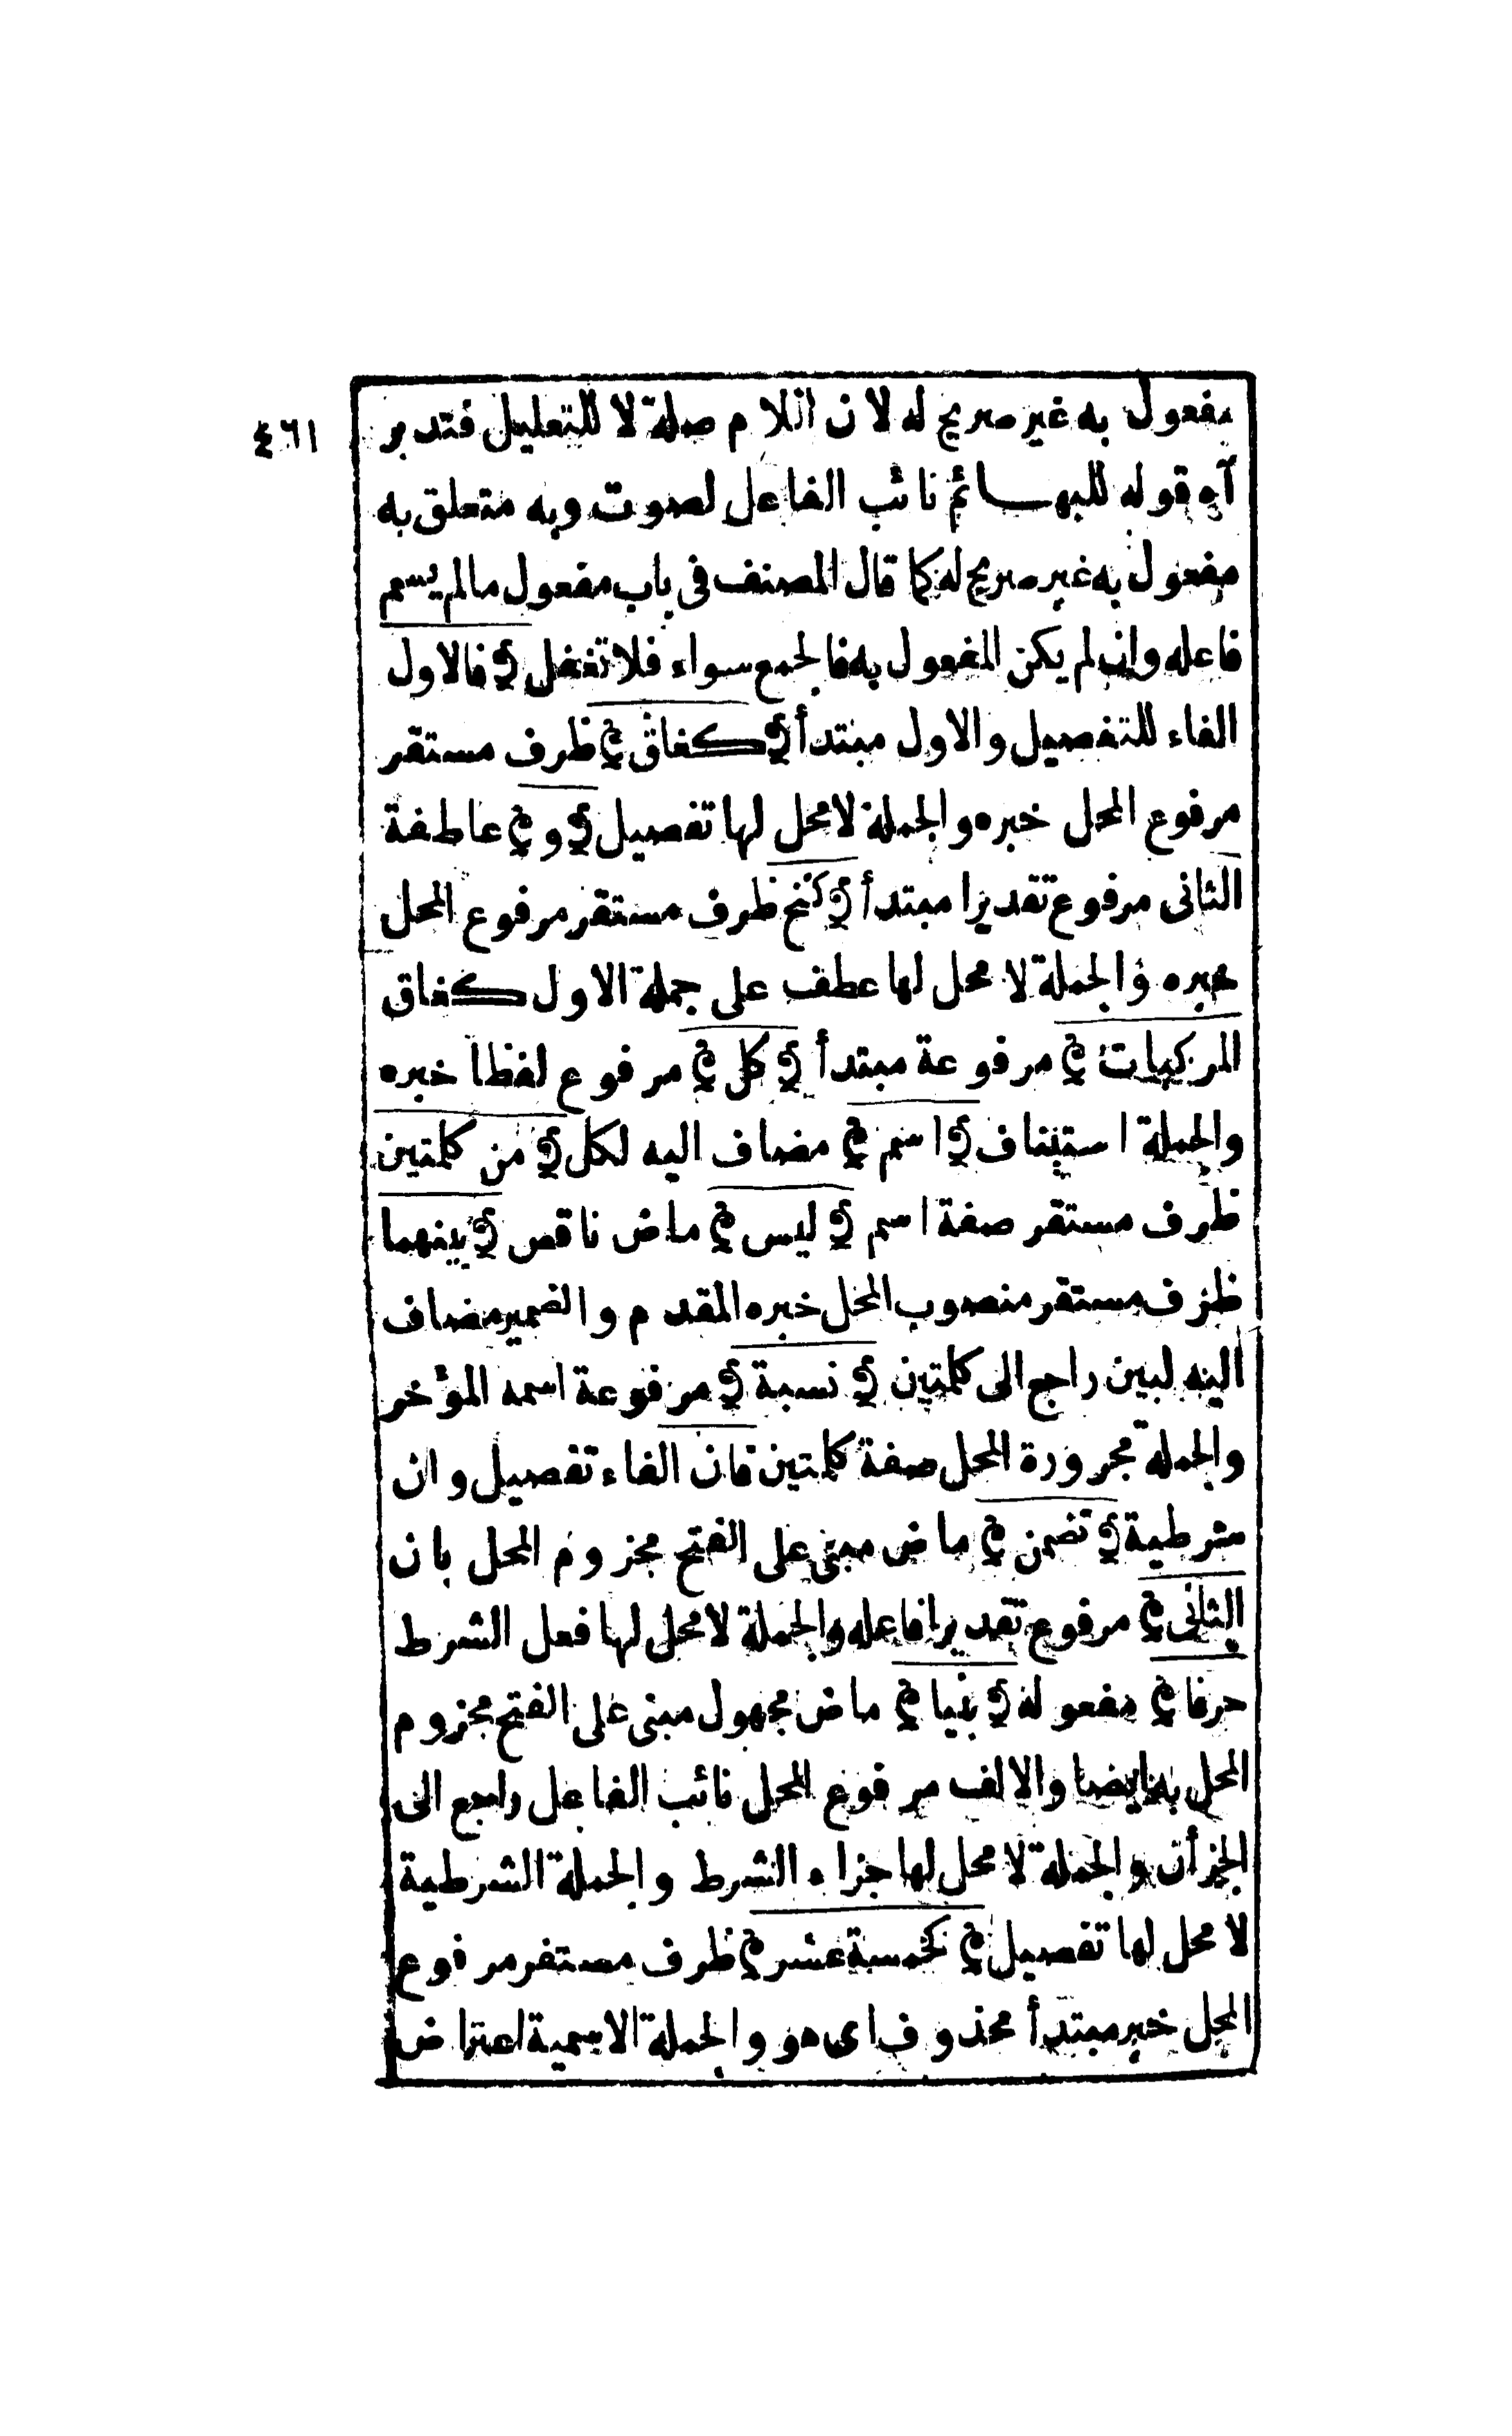 ٤٦١
مفعول به غير صريح له لان اللام صلة لا للتعليل فتدبر
آه قوله للبهائم نائب الفاعل لصوت وبه متعلق به
مفعول به غير صريح له كما قال المصنف فى باب مفعول مالم يسم
فاعله وان لم يكن المفعول به فالجمع سواء فلا تغفل ﴿ فالاول
الفاء للتفصيل والاول مبتدأ ﴿ كغاق ﴾ ظرف مستقر
مرفوع المحل خبره والجملة لا محل لها تفصيل ﴿ و ﴾ عاطفة
الثانى مرفوع تقديرا مبتدأ ﴿ كنخ ظرف مستقر مرفوع المحل
خبره والجملة لا محل لها عطف على جملة الاول كغاق
المركبات ﴾ مرفوعة مبتدأ ﴿ كل ﴾ مرفوع لفظا خبره
والجملة استيناف ﴿ اسم ﴾ مضاف اليه لكل ﴿ من كلمتين
ظرف مستقر صفة اسم ﴿ ليس ﴾ ماض ناقص ﴿ بينهما
ظرف مستقر منصوب المحل خبره المقدم والضمير مضاف
اليه لبين راجع الى كلمتين ﴿ نسبة ﴿ مرفوعة اسمه المؤخر
والجملة مجرورة المحل صفة كلمتين فان الفاء تفصيل وان
شرطية ﴿ تضمن ﴾ ماض مبنى على الفتح مجزوم المحل بان
الثانى ﴾ مرفوع تقديرا فاعله والجملة لا محل لها فعل الشرط
حرفا ﴾ مفعوله ﴿ بنيا ﴾ ماض مجهول مبنى على الفتح مجزوم
المحل به ايضا والالف مرفوع المحل نائب الفاعل راجع الى
الجزأن والجملة لا محل لها جزاء الشرط والجملة الشرطية
لا محل لها تفصيل ﴾ كخمسة عشر ﴾ ظرف مستقر مرفوع
المحل خبر مبتدأ محذوف اى هو والجملة الاسمية اعتراض